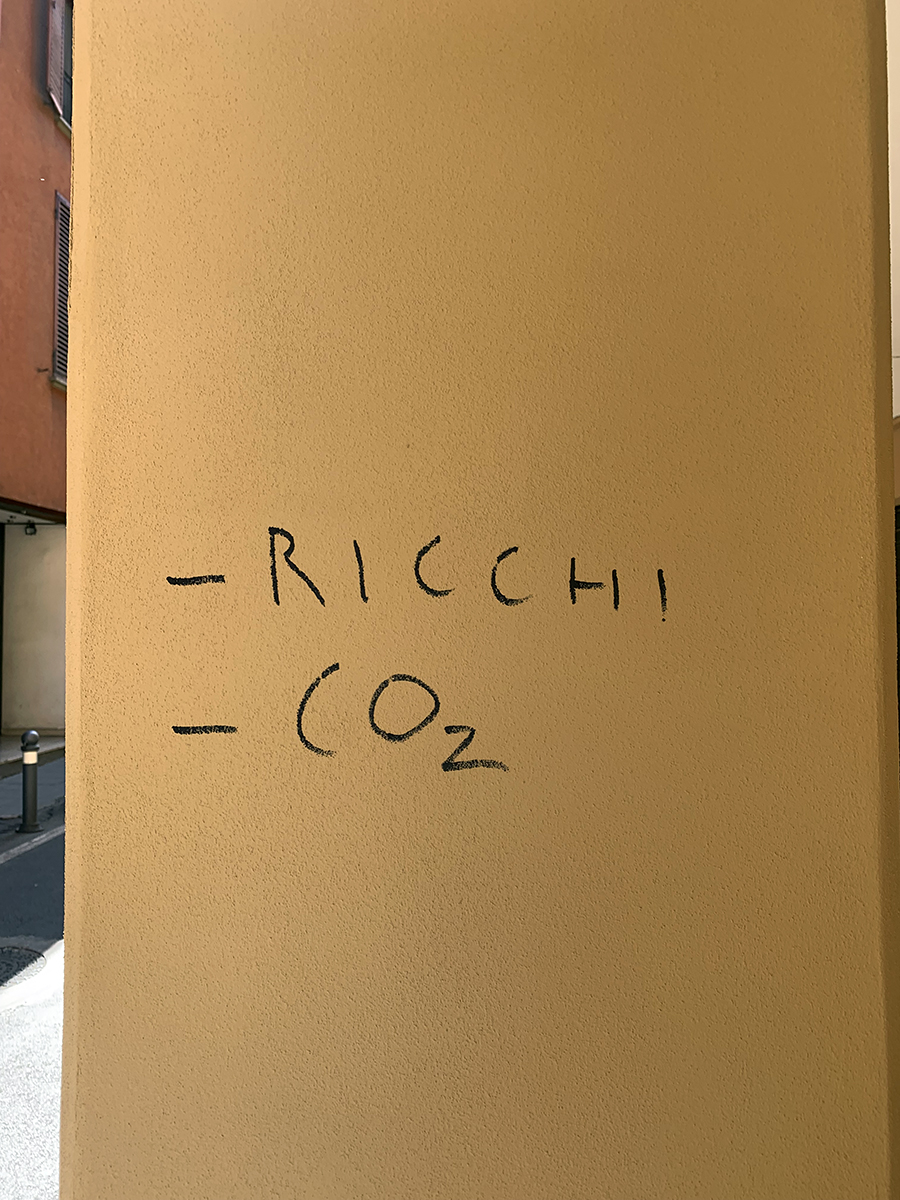 - RICCHI
- CO₂